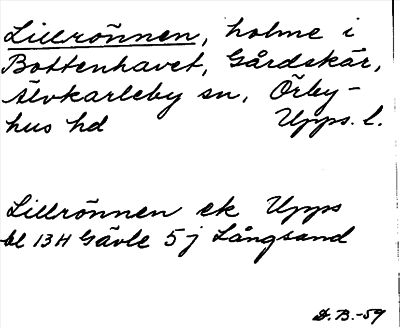 Lillrönnen, holme i
Bottenhavet, Gårdskär,
Älvkarleby sn, Örby-
hus hd Upps. l.
Lillrönnen ek Upps
bl 13H Gävle 5j Långsand
D.B.-59